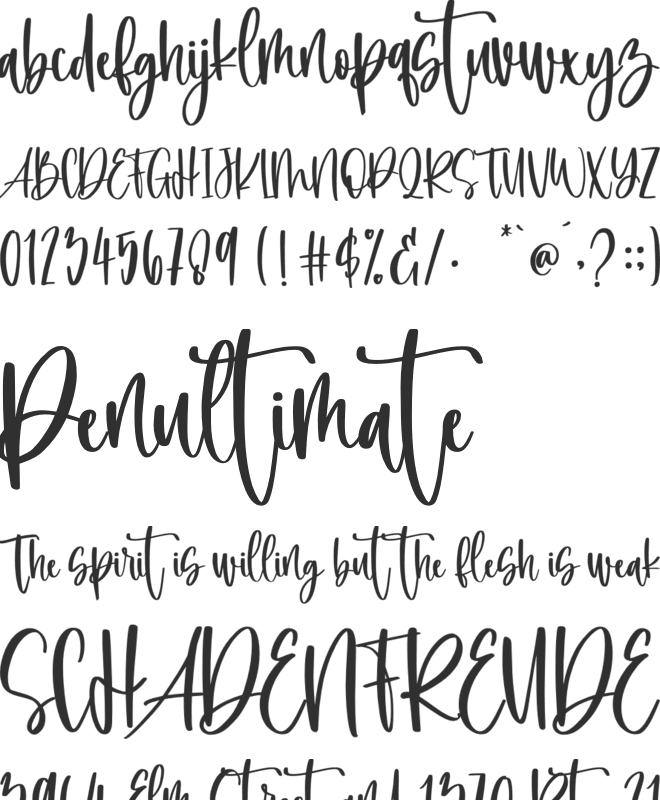 abcdefghijklmnopqrstuvwxyz
ABCDEFGHIJKLMNOPQRSTUVWXYZ
0123456789 (!#$%&/. *`@´,?:;)
Penultimate
The spirit is willing but the flesh is weak
SCHADENFREUDE
3964 Elm Street and 1370 Rt. 21